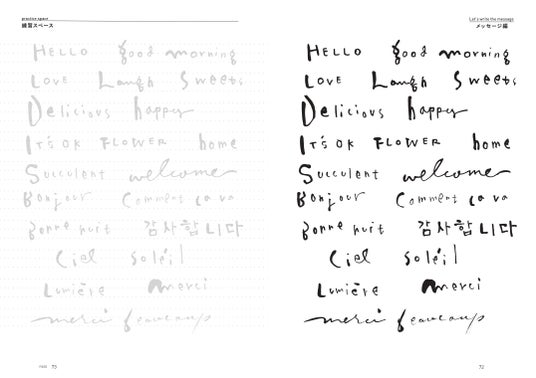 practice space
練習スペース
HELLO good morning
LOVE Laugh Sweets
Delicious happy
IT'S OK FLOWER home
Succulent welcome
Bonjour Comment ça va
Bonne nuit 감사합니다
Ciel Soleil
Lumière Merci
merci beaucoup
73
Let's write the message
メッセージ編
HELLO good morning
LOVE Laugh Sweets
Delicious happy
IT'S OK FLOWER home
Succulent welcome
Bonjour Comment ça va
Bonne nuit 감사합니다
Ciel Soleil
Lumière Merci
merci beaucoup
72